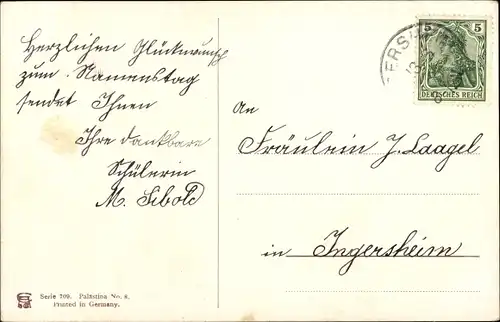 Herzlichen Glückwunsch
zum Namenstag
sendet Ihnen
Ihre dankbare
Schülerin
M. Sebold
5 5
DEUTSCHES REICH
An
Fräulein J. Laagel
in Ingersheim
Serie 709. Palästina No. 8.
Printed in Germany.